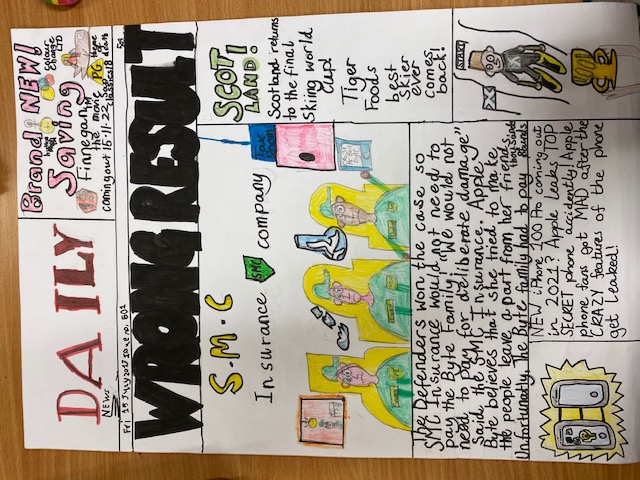 DAILY
NEWS
Brand NEW!
Saving
colour
change
LTD
Finnegan
the movie
coming out 15.11.22
PO
WRONG RESULT
S.M.C
Insurance
SMC
company
SCOT
LAND!
Scotland returns
to the final
skiing world
cup!
Tiger
Foods
best
skier
ever
comes
back!
The Defenders won the case so
SMC Insurance would not need to
pay the Byte Family. "We would not
need to pay for deliberate damage"
Said the SMC Insurance. Apple
Byte believes that she tried to make
the people leave apart from her friend.
Unfortunately, The Byte family had to pay
NEW iPhone 100 Pro coming out
in 2021? Apple leaks TOP
SECRET phone accidently! Apple
phone fans got MAD after the
CRAZY features of the phone
get leaked!